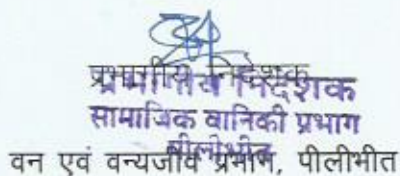 प्रभागीय निदेशक
प्रभागीय निदेशक
सामाजिक वानिकी प्रभाग
पीलीभीत
वन एवं वन्यजीव प्रभाग, पीलीभीत